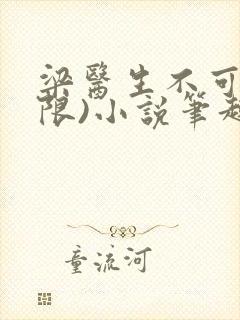 梁醫生不可
限)小說筆趣
童流河